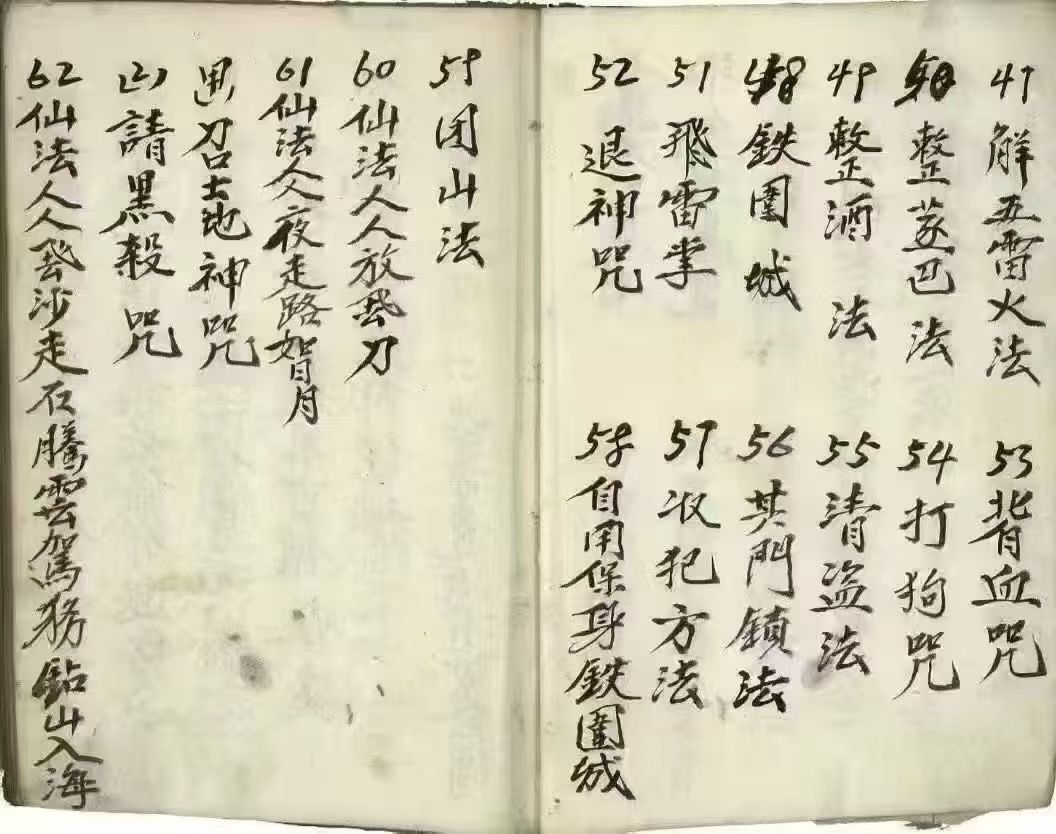 47 解五雷火法
整蒸巴法
49 整酒法
鉄圍城
51 飛雷掌
52 退神咒
53 背血咒
54 打狗咒
55 清盗法
56 其門鎖法
57 收犯方法
58 自用保身鉄圍城
59 团山法
60 仙法人人放飛刀
61 仙法人人夜走路如月
召土地神咒
請黑殺咒
62 仙法人人飛沙走石騰雲駕務鈷山入海